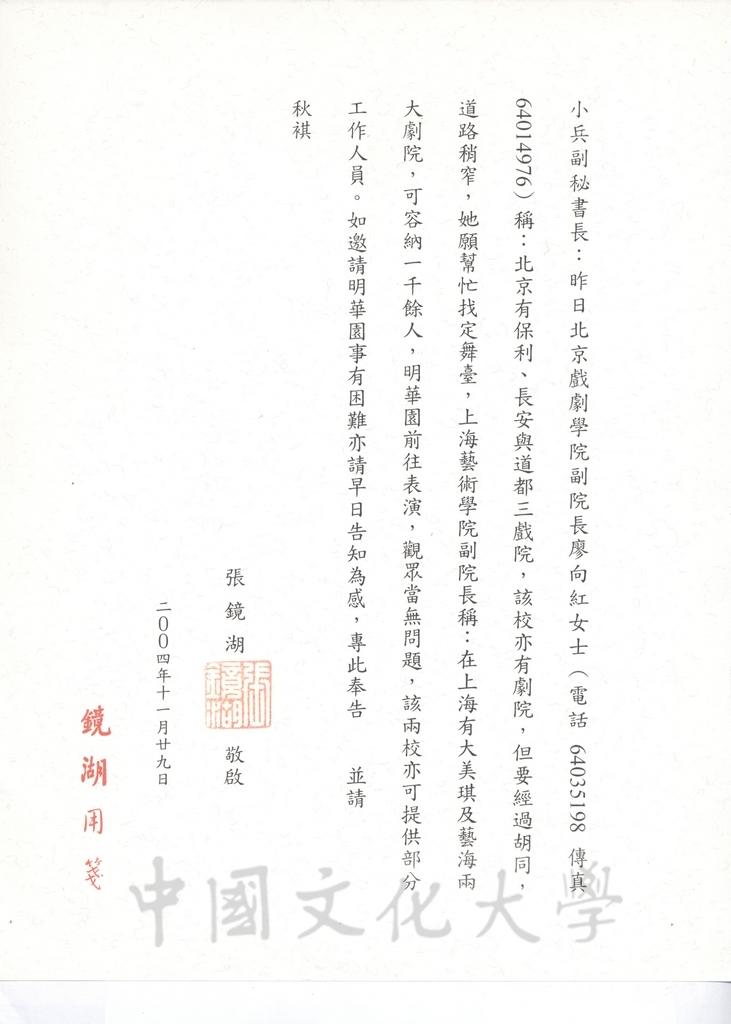 小兵副秘書長：昨日北京戲劇學院副院長廖向紅女士（電話 64035198 傳真
64014976）稱：北京有保利、長安與道都三戲院，該校亦有劇院，但要經過胡同，
道路稍窄，她願幫忙找定舞臺，上海藝術學院副院長稱：在上海有大美琪及藝海兩
大劇院，可容納一千餘人，明華園前往表演，觀眾當無問題，該兩校亦可提供部分
工作人員。如邀請明華園事有困難亦請早日告知為感，專此奉告　並請
秋祺
張鏡湖 張鏡湖 敬啟
二00四年十一月廿九日
鏡湖用箋
中國文化大學